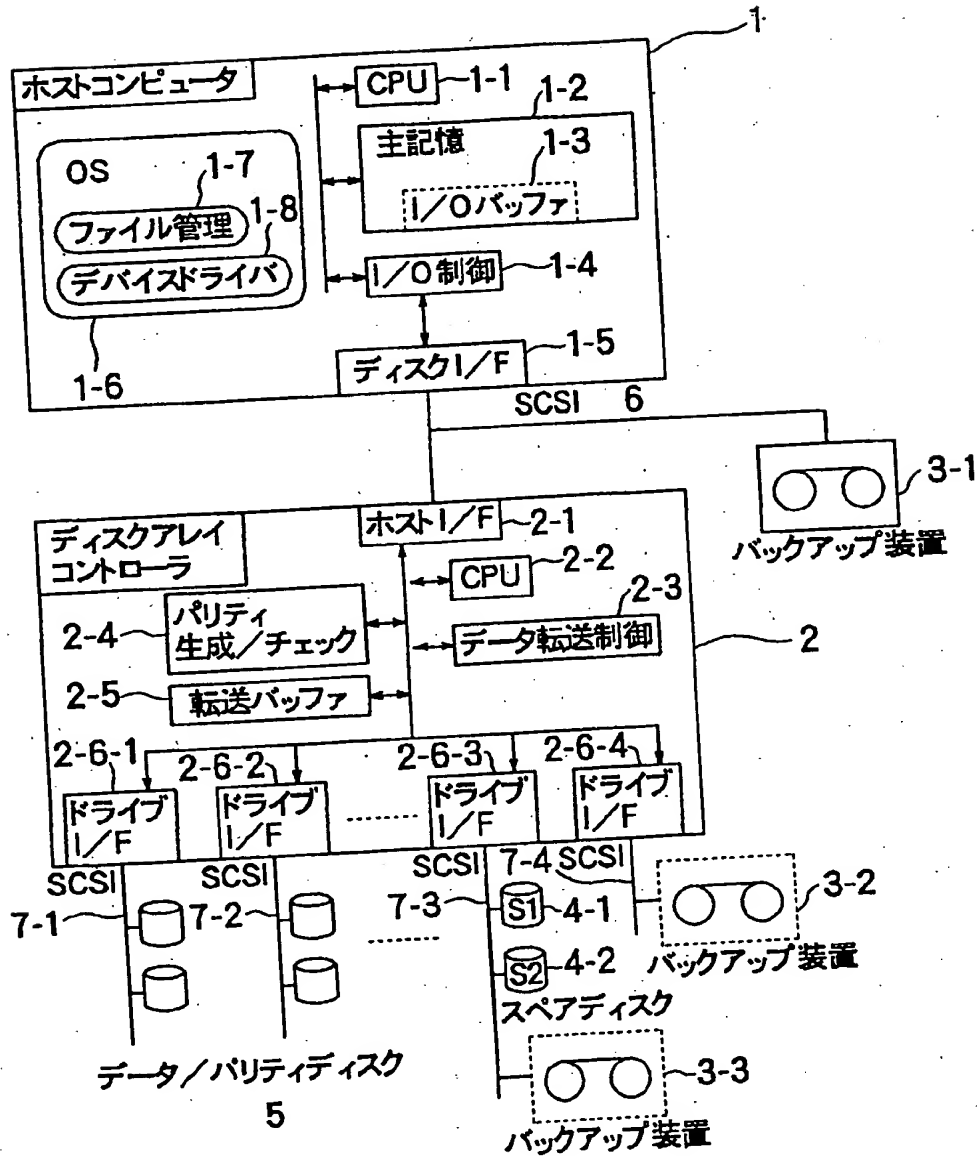 1
ホストコンピュータ
CPU
1-1
1-2
主記憶
1-3
I/Oバッファ
OS
1-7
ファイル管理
1-8
デバイスドライバ
I/O制御
1-4
1-6
ディスクI/F
1-5
SCSI
6
3-1
バックアップ装置
ディスクアレイ
コントローラ
ホストI/F
2-1
CPU
2-2
2-3
データ転送制御
2
2-4
パリティ
生成/チェック
2-5
転送バッファ
2-6-1
2-6-2
2-6-3
2-6-4
ドライブ
I/F
ドライブ
I/F
ドライブ
I/F
ドライブ
I/F
SCSI
SCSI
SCSI
7-4
SCSI
7-1
7-2
7-3
S1
4-1
S2
4-2
スペアディスク
3-2
バックアップ装置
データ/パリティディスク
5
3-3
バックアップ装置